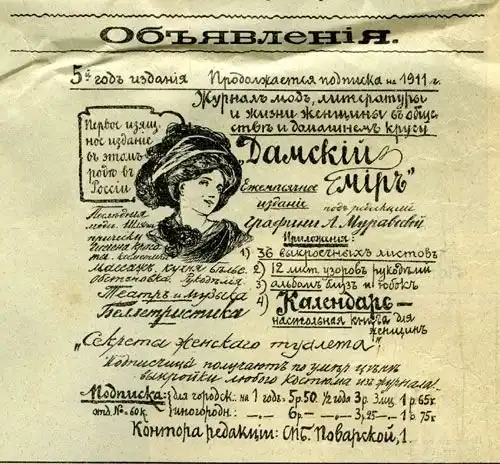 Объявленія.
5й годъ изданія Продолжается подписка на 1911 г.
Журналъ модъ, литературы
и жизни женщины въ обще
ствѣ и домашнемъ кругу
Первое изящ
ное изданіе
въ этомъ
родѣ въ
Россіи
„Дамскій
міръ"
Ежемѣсячное
изданіе
подъ редакціей
графини А. Муравьевой
Последнія
моды. Шляпы
прически
Гигіена
массажъ. кухня бѣлье.
обстановка. Рукодѣлія
Театръ и Музыка
Беллетристика
Приложенія:
1) 36 выкроечныхъ листовъ
2) 12 лист. узоровъ рукодѣлія
3) альбомъ блузъ и юбокъ
4) Календарь—
настольная книга для
женщинъ
„Секреты женскаго туалета,"
Подписчицы получаютъ по умѣр цѣнѣ
выкройки любого костюма изъ журнала!
Подписка: для городск. на 1 годъ 5р.50. 1/2 года 3р. 3 мц. 1 р. 65к
отд. № 60 к. иногородн: —„— 6р — 3р.25 —„— 1 р. 75к
Контора редакціи: СПБ. Поварской, 1.